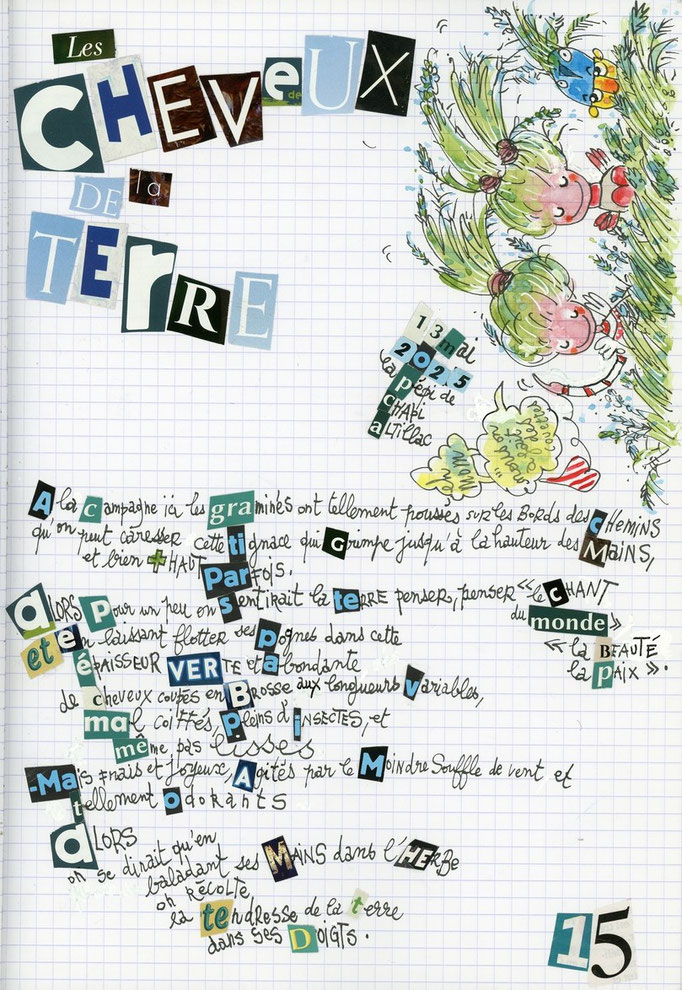 Les
CHEVeUX
DE la
TERRE
13 mai
2025
la pépi de
CHAPI
ALTILLAC
A la campagne ici les graminés ont tellement poussés sur les BORDS des CHEMINS
qu'on peut caresser cette tignace qui Grimpe jusqu'à la hauteur des MAINS,
et bien + HAUT PARFOIS.
alors Pour un peu on sentirait la teRRE penser, penser « le CHANT
du monde »
« la BEAUTÉ
la PAIX ».
et en laissant flotter ses pognes dans cette
ÉPAISSEUR VERte et abondante
de cheveux coupés en BRosse aux longueurs variables,
mal coiffés, pleins d'INSECTES, et
même pas lisses
-Mais FRais et joyeux, Agités par le MoindRe Souffle de vent, et
tellement odoRANTS
alors
on se dirait qu'en
baladant ses MAINS dans l'HERBe
on RÉCOLTE
la tendresse de la terre
dans ses DOIGTS.
15